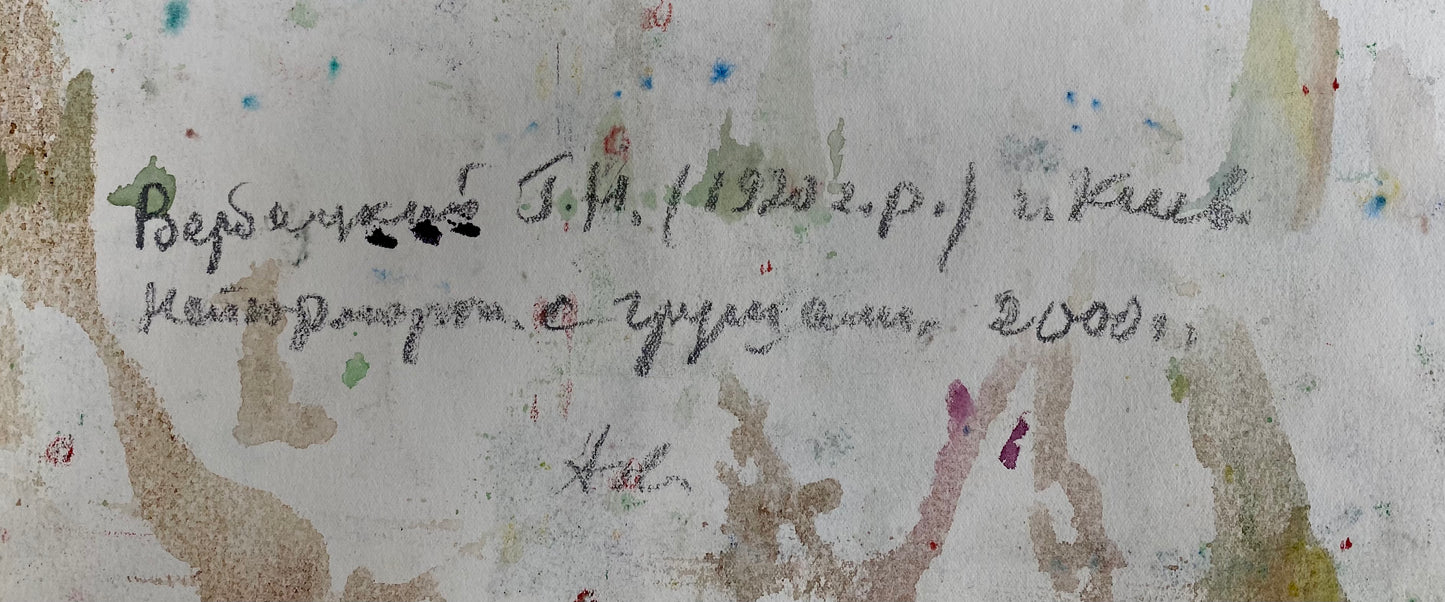 Вербицкий Г.И. (1920 г.р.) г. Киев.
Натюрморт с грушами, 2000 г.,